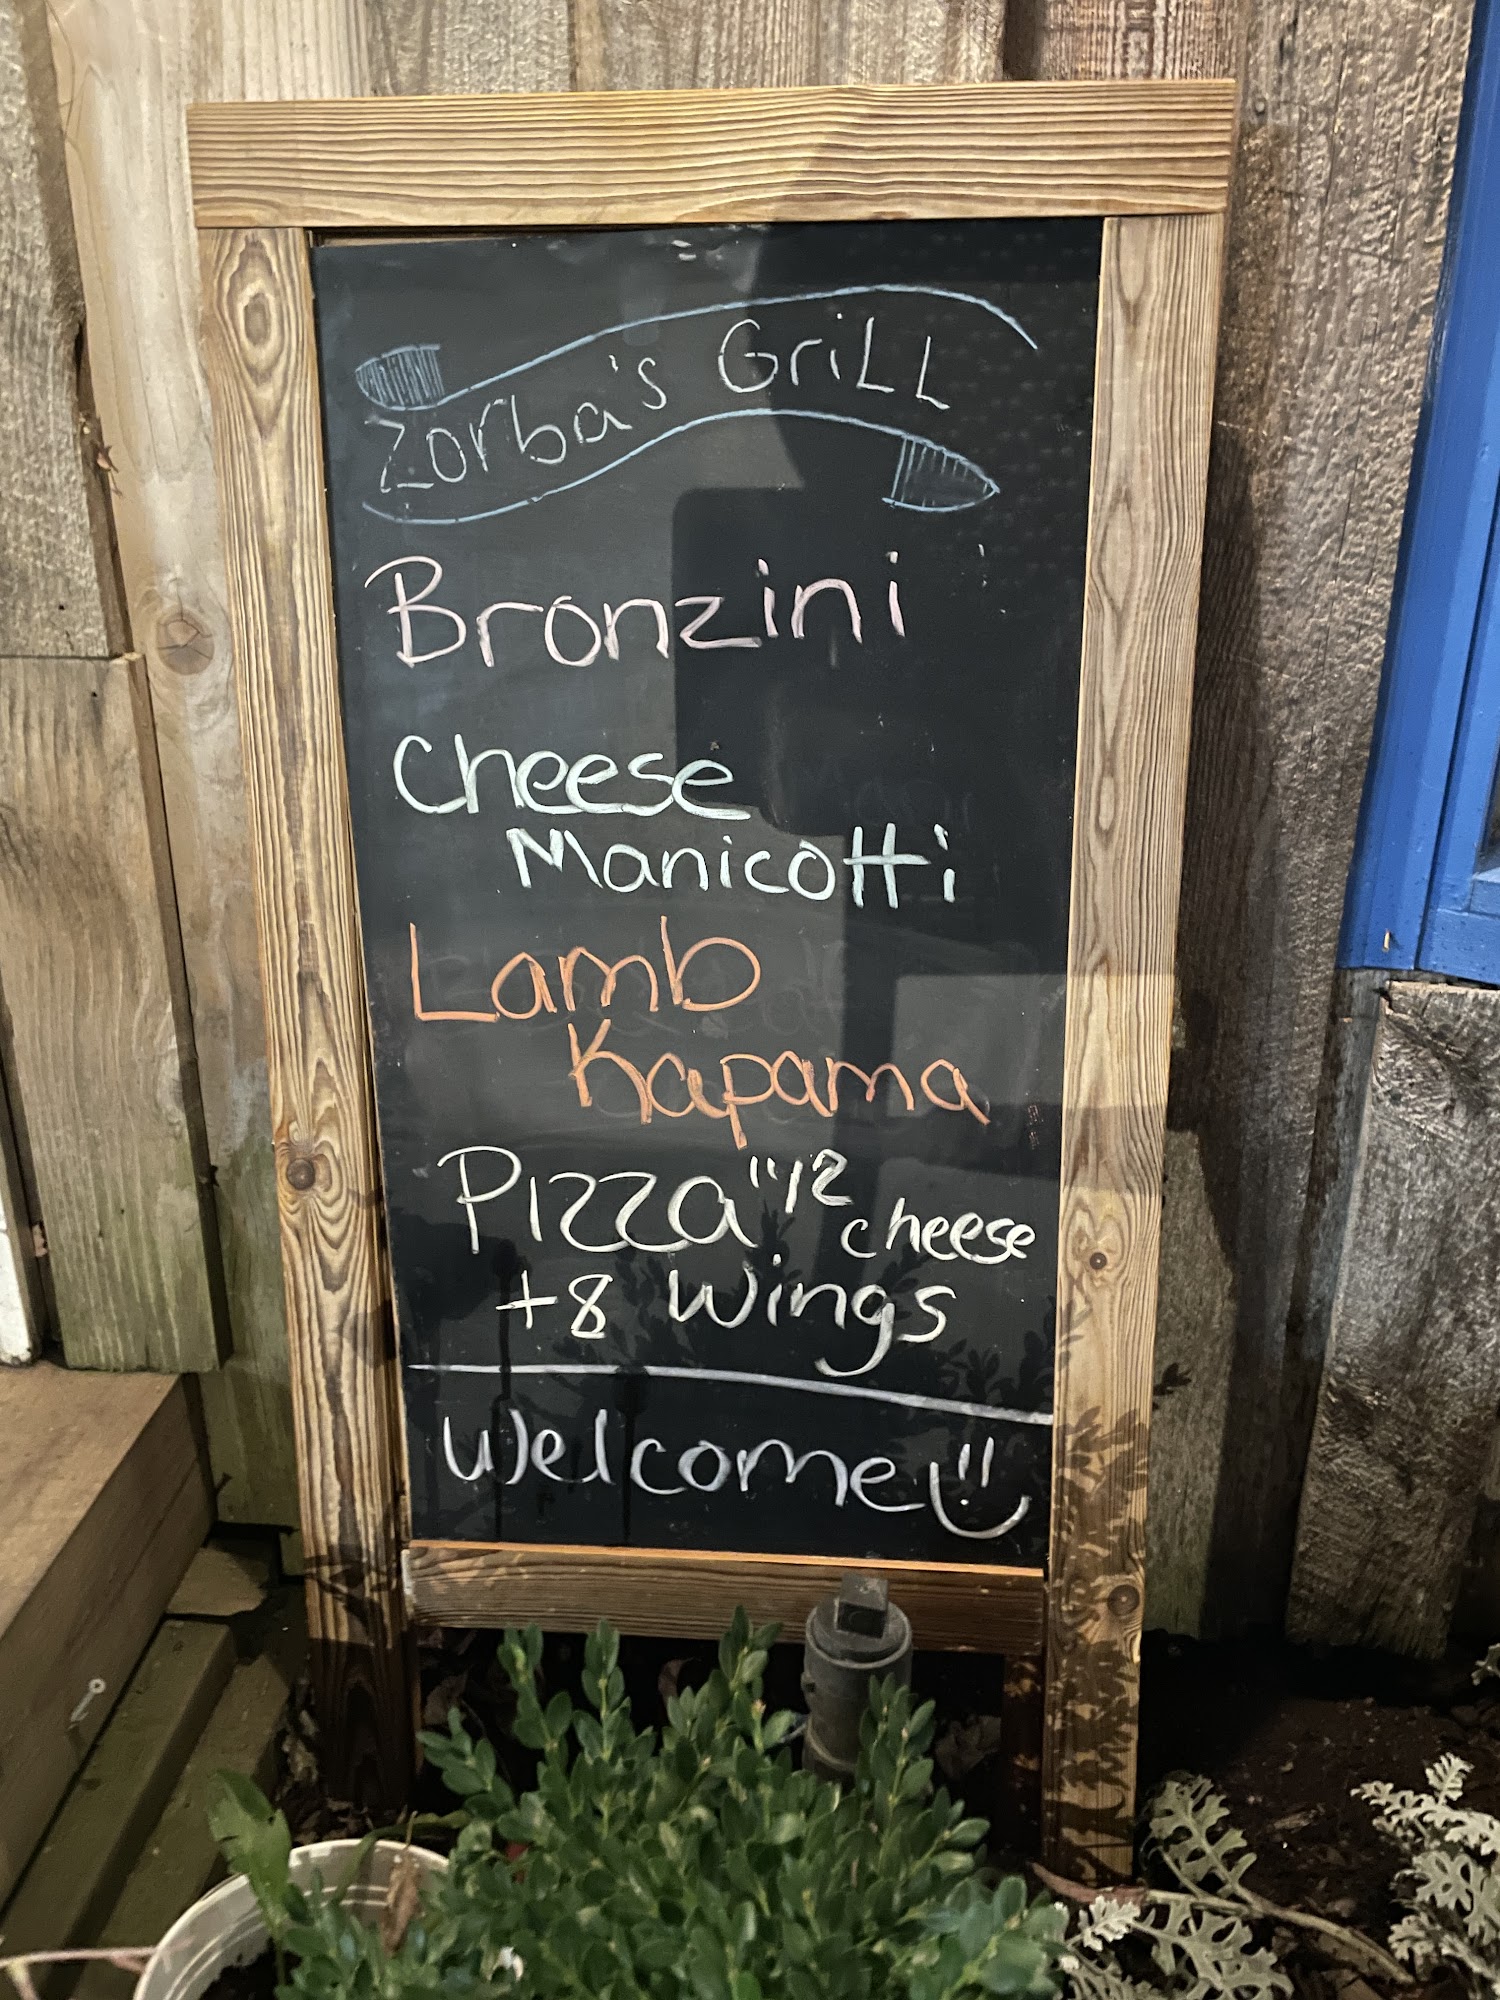 Zorba's GriLL
Bronzini
Cheese
Manicotti
Lamb
Kapama
Pizza "12
cheese
+8 Wings
Welcome!!